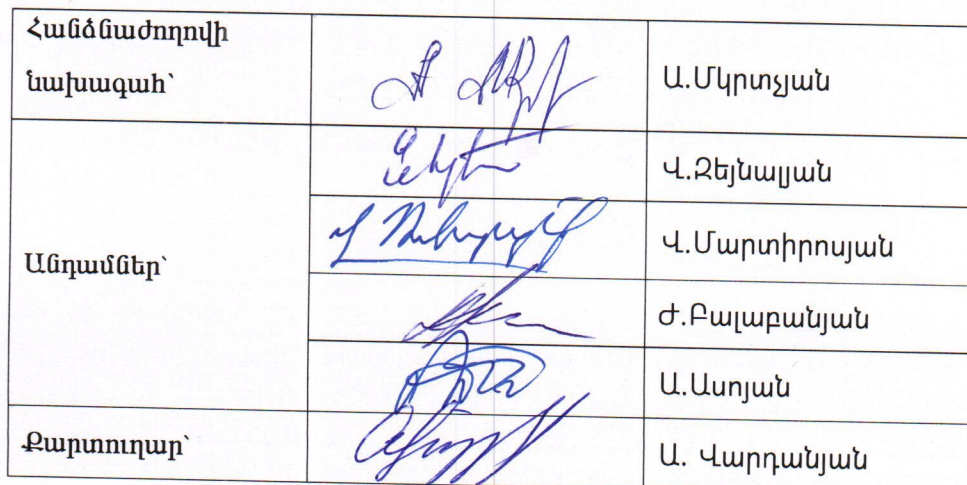 Հանձնաժողովի
նախագահ՝
Ա.Մկրտչյան
Անդամներ՝
Վ.Զեյնալյան
Վ.Մարտիրոսյան
Ժ.Բալաբանյան
Ա.Ասոյան
Քարտուղար՝
Ա. Վարդանյան